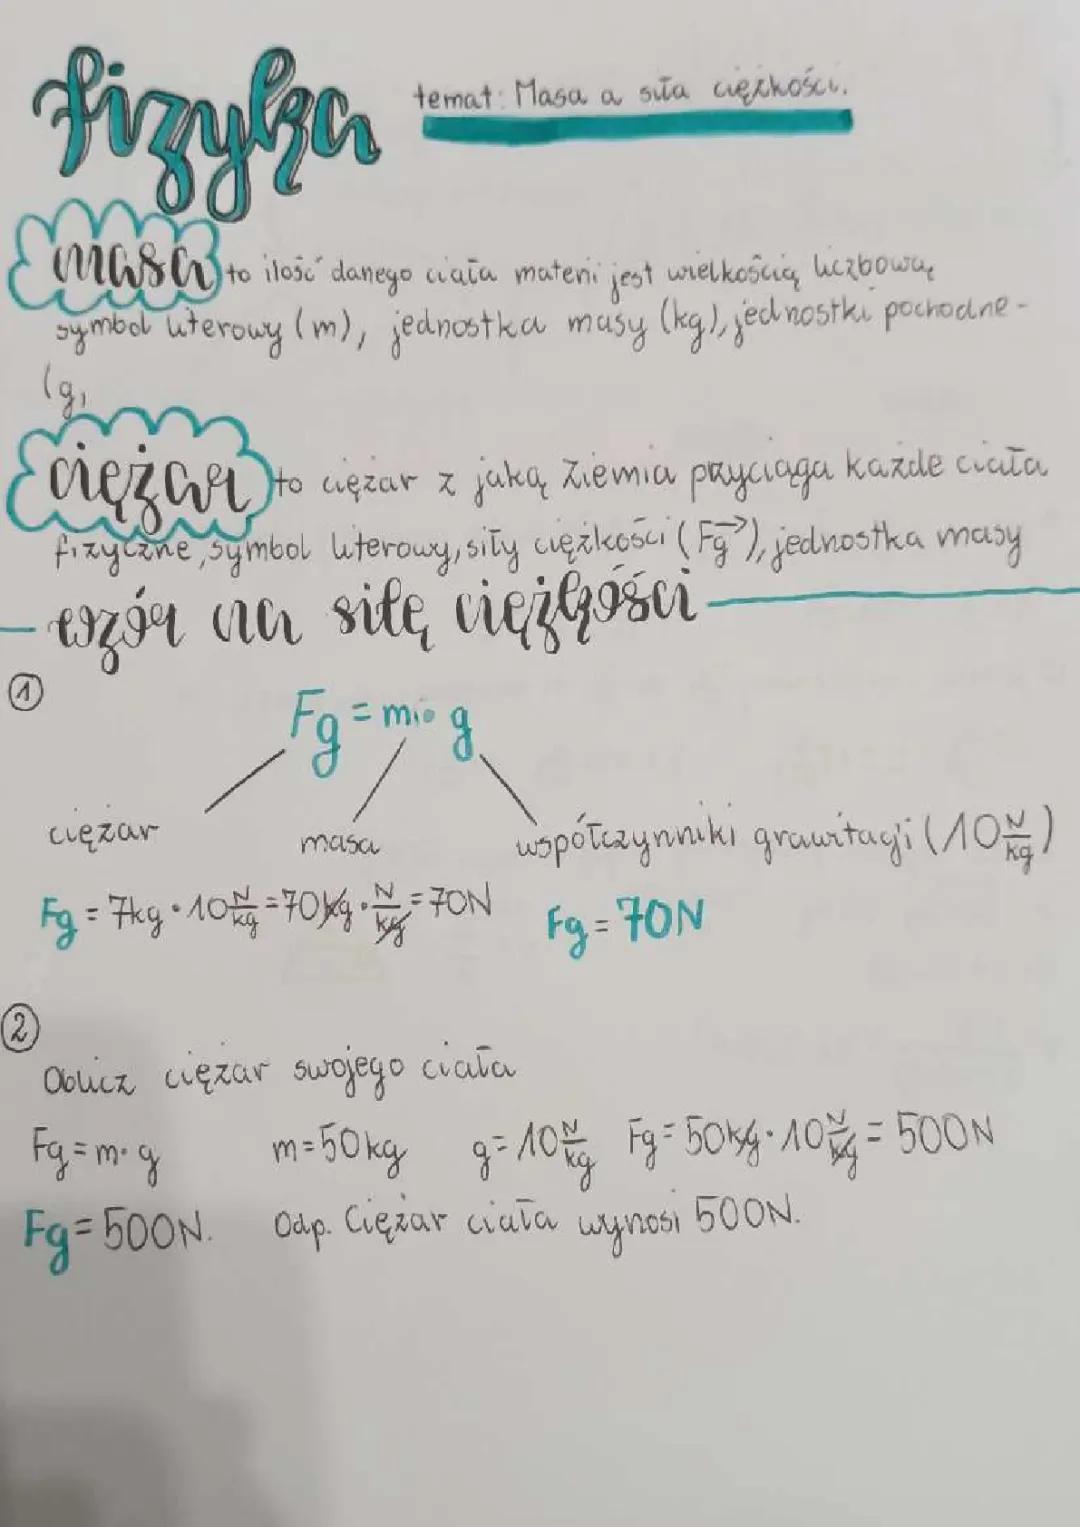 fizyka
temat: Masa a siła ciężkości.
masa to ilość danego ciała materii jest wielkością liczbową
symbol literowy (m), jednostka masy (kg), jednostki pochodne -
(g,
ciężar to ciężar z jaką Ziemia przyciąga każde ciała
fizyczne, symbol literowy, siły ciężkości (Fg→), jednostka masy
wzór na siłę ciężkości
①
Fg = m · g
ciężar masa współczynniki grawitacji (10 N/kg)
Fg = 7kg · 10 N/kg = 70 kg · N/kg = 70N Fg = 70N
②
Oblicz ciężar swojego ciała
Fg = m · g m = 50 kg g = 10 N/kg Fg = 50kg · 10 N/kg = 500N
Fg = 500N. Odp. Ciężar ciała wynosi 500N.